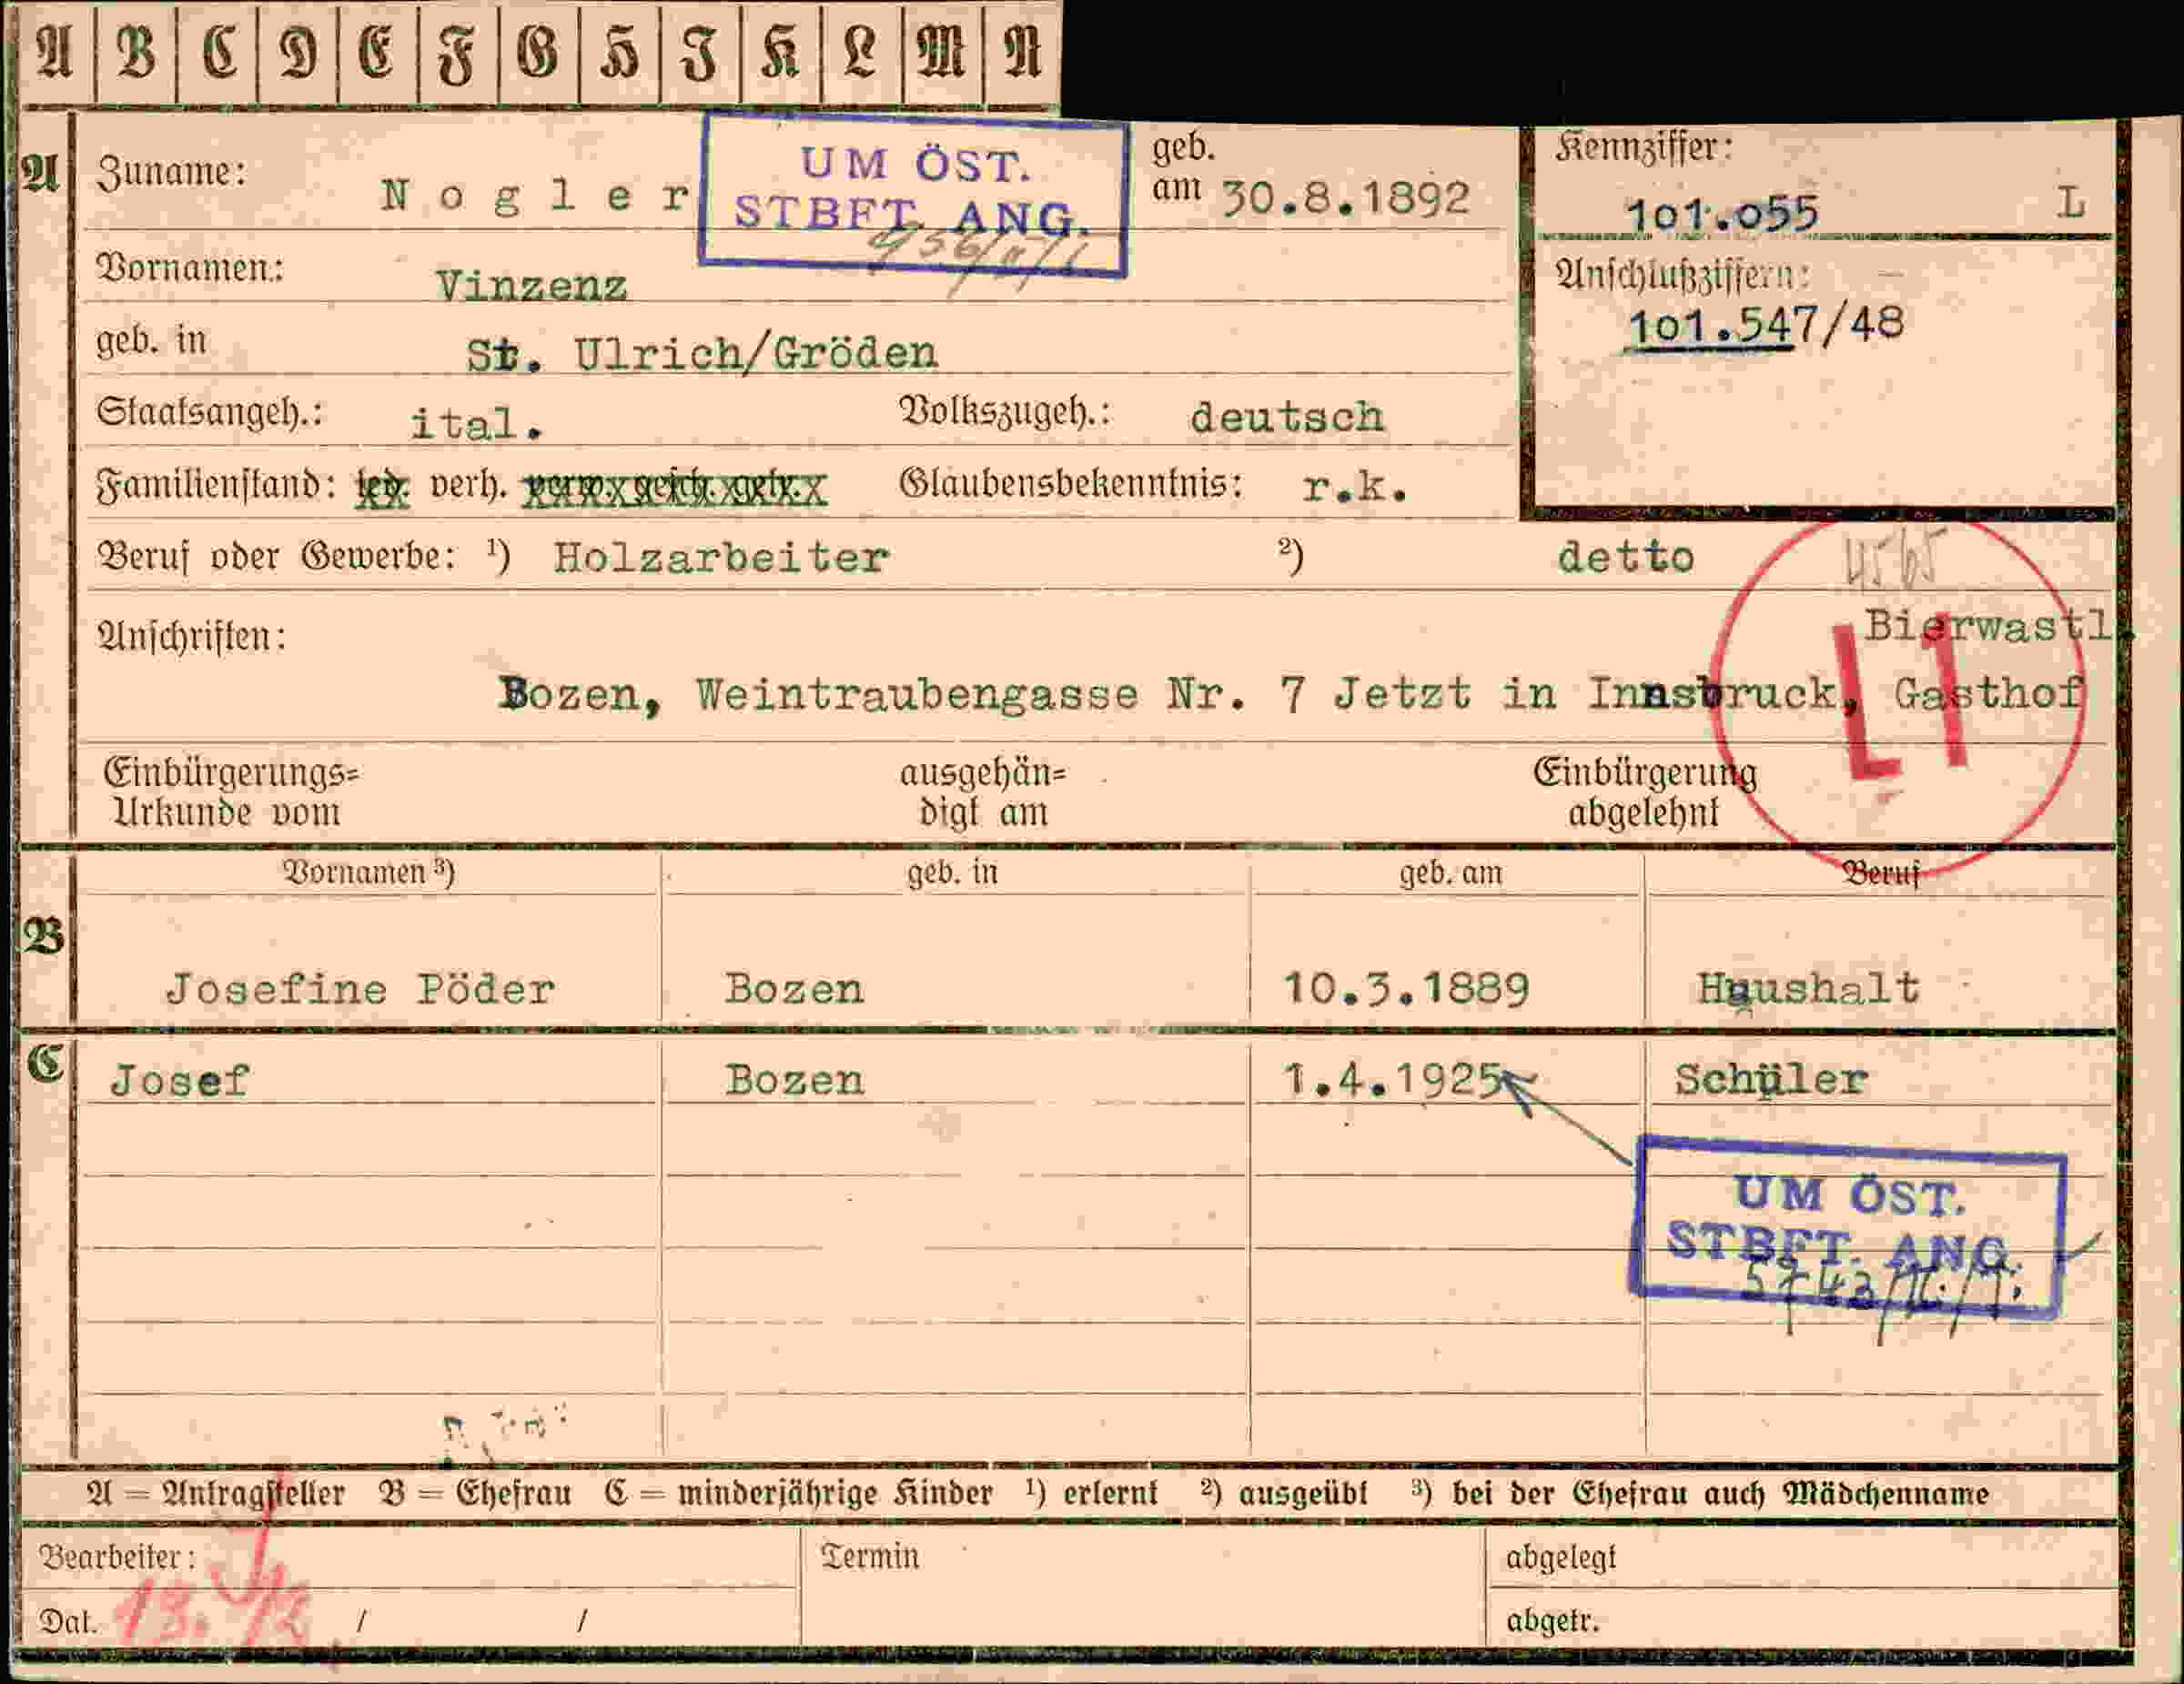 A B C D E F G H I K L M N
A Zuname: Nogler geb. am 30.8.1892
UM ÖST.
STBFT. ANG.
Kennziffer:
101.055 L
Vornamen: Vinzenz
Anschlußziffern:
101.547/48
geb. in St. Ulrich/Gröden
Staatsangeh.: ital. Volkszugeh.: deutsch
Familienstand: led. verh. Glaubensbekenntnis: r.k.
Beruf oder Gewerbe: ¹) Holzarbeiter ²) detto
4565
Anschriften: Bierwastl
Bozen, Weintraubengasse Nr. 7 Jetzt in Innsbruck, Gasthof
L1
Einbürgerungs= ausgehän= Einbürgerung
Urkunde vom digt am abgelehnt
Vornamen ³) geb. in geb. am Beruf
B
Josefine Pöder Bozen 10.3.1889 Haushalt
C Josef Bozen 1.4.1925 Schüler
UM ÖST.
STBFT. ANG.
5743/II./1.
A = Antragsteller B = Ehefrau C = minderjährige Kinder ¹) erlernt ²) ausgeübt ³) bei der Ehefrau auch Mädchenname
Bearbeiter: Termin abgelegt
Dat. / / abgetr.